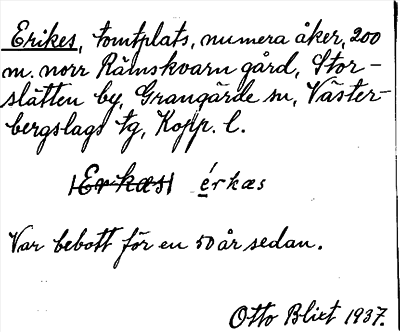 Erikes, tomtplats, numera åker, 200
m. norr Rämskvarn gård, Stor-
slätten by, Grangärde sn, Väster-
bergslags tg, Kopp. l.
Erkæs érkæs
Var bebott för en 50 år sedan.
Otto Blixt 1937.